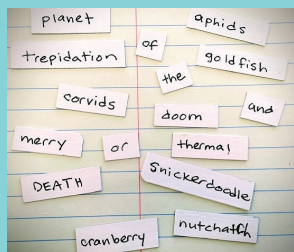 planet
aphids
trepidation
of
goldfish
the
corvids
doom
and
merry
or
thermal
DEATH
Snickerdoodle
cranberry
nutchatch